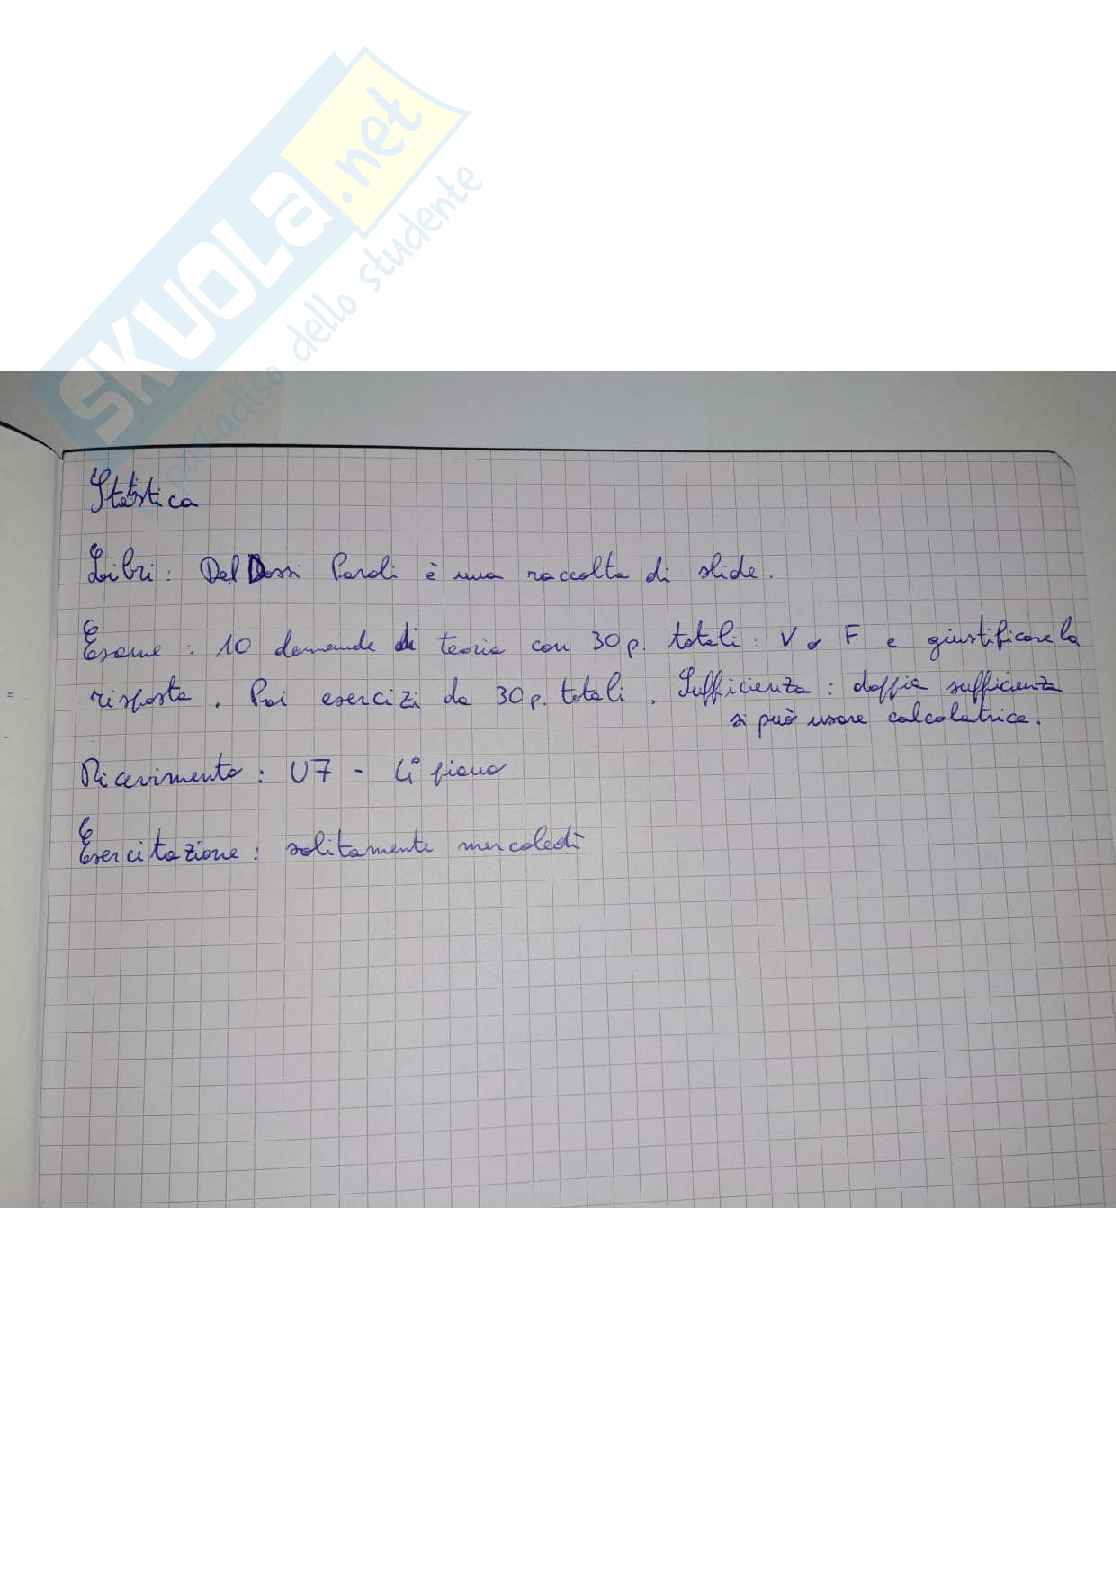 SKUOLA.net
paradiso dello studente
Statistica
Libri: Del Dossi Paroli è una raccolta di slide.
Esame: 10 domande di teoria con 30 p. totali: V o F e giustificare la
risposta. Poi esercizi da 30 p. totali. Sufficienza: doppia sufficienza
si può usare calcolatrice.
Ricevimento: U7 - 4° piano
Esercitazione: solitamente mercoledì